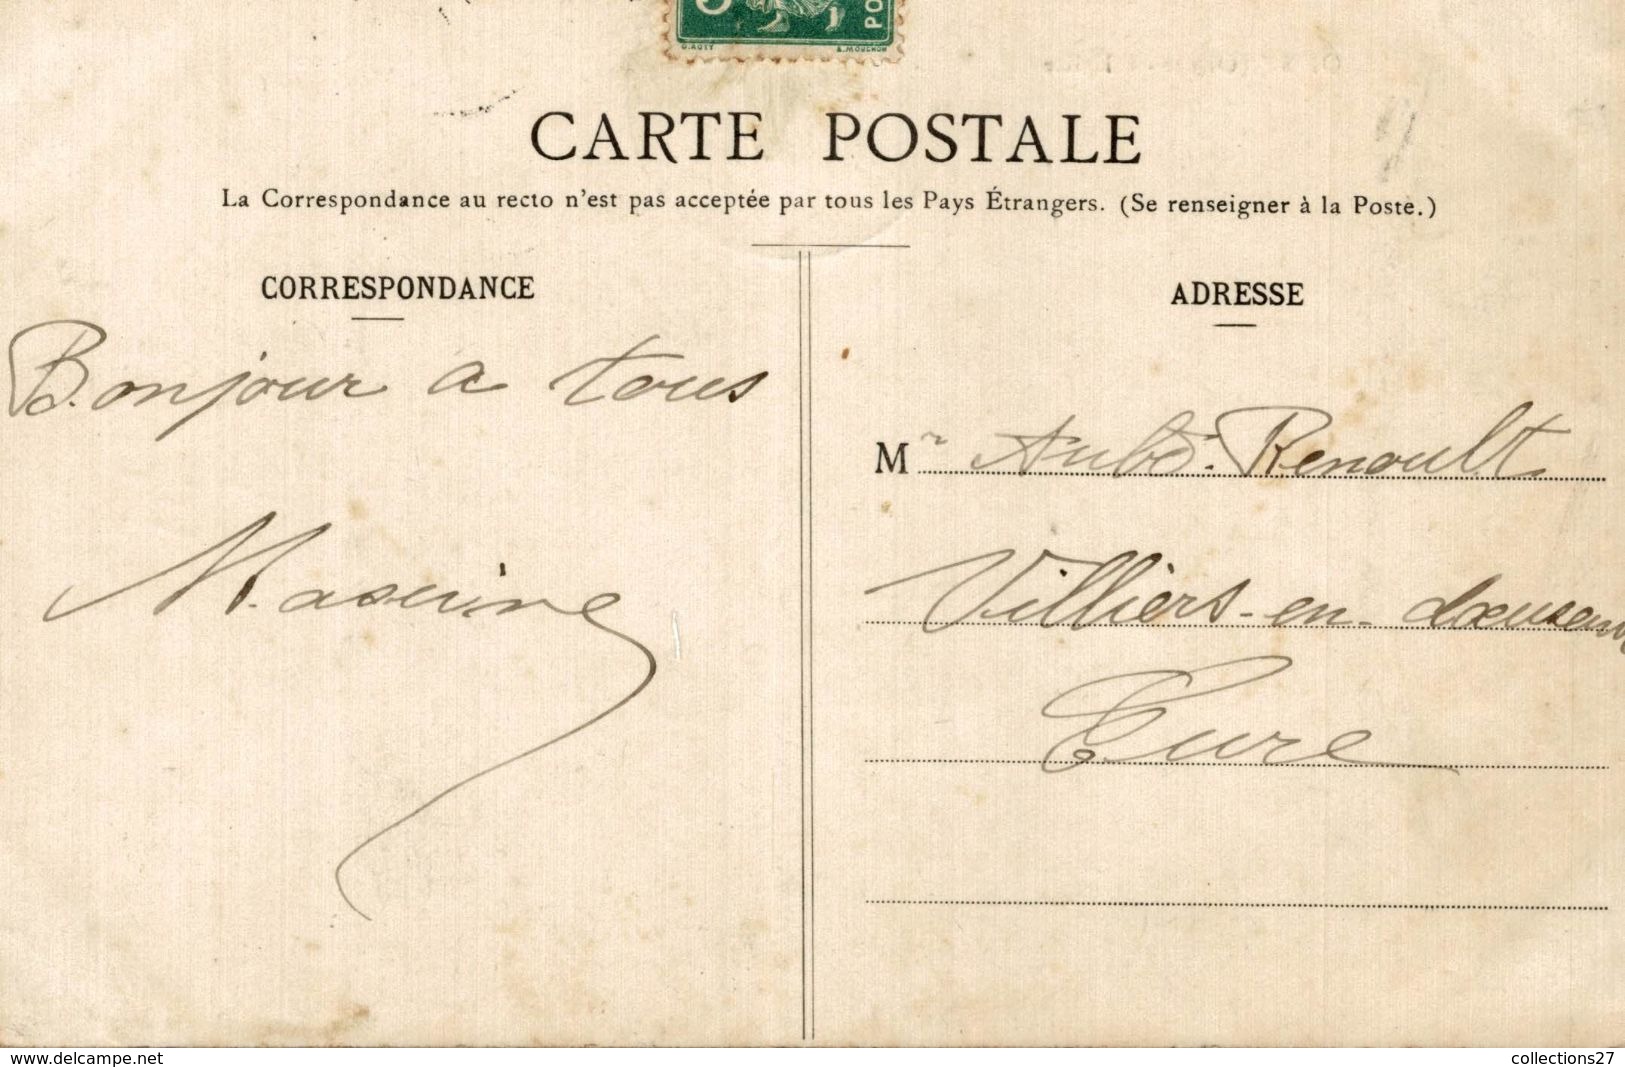 POS
O. ROTY
A. MOUCHON
CARTE POSTALE
La Correspondance au recto n'est pas acceptée par tous les Pays Étrangers. (Se renseigner à la Poste.)
CORRESPONDANCE
ADRESSE
Bonjour a tous
Mr Renoult
Villiers-en-
Eure
www.delcampe.net
collections27